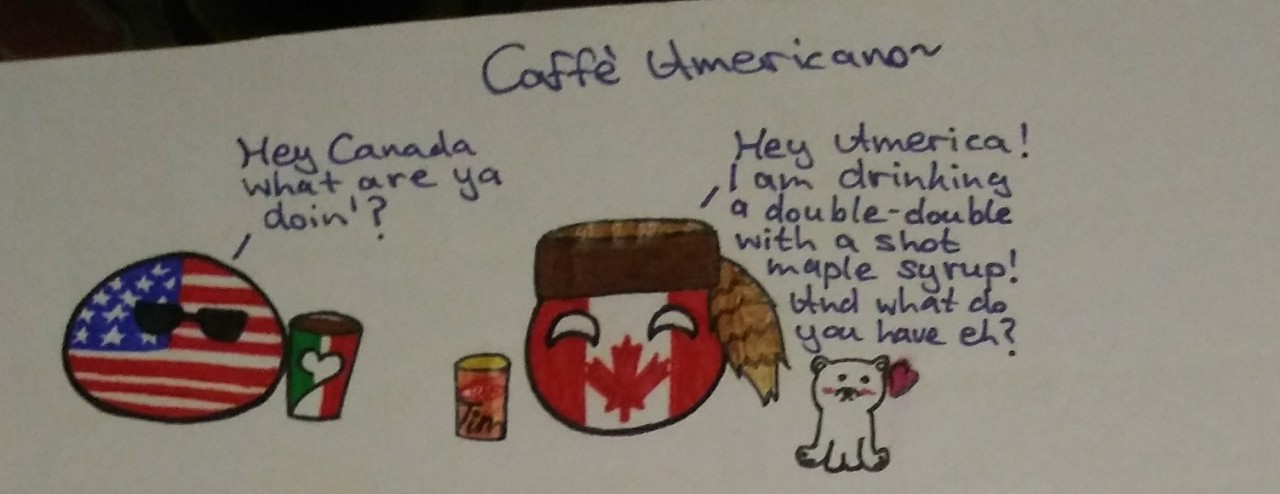 Caffè Americano~
Hey Canada
what are ya
doin'?
Hey America!
I am drinking
a double-double
with a shot
maple syrup!
And what do
you have eh?
Tim